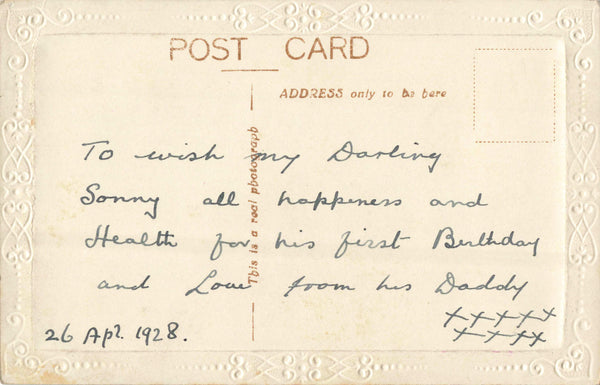 POST CARD
ADDRESS only to be here
This is a real photograph
To wish my Darling
Sonny all happeness and
Health for his first Birthday
and Love from his Daddy
×××××
××××
26 Apl. 1928.